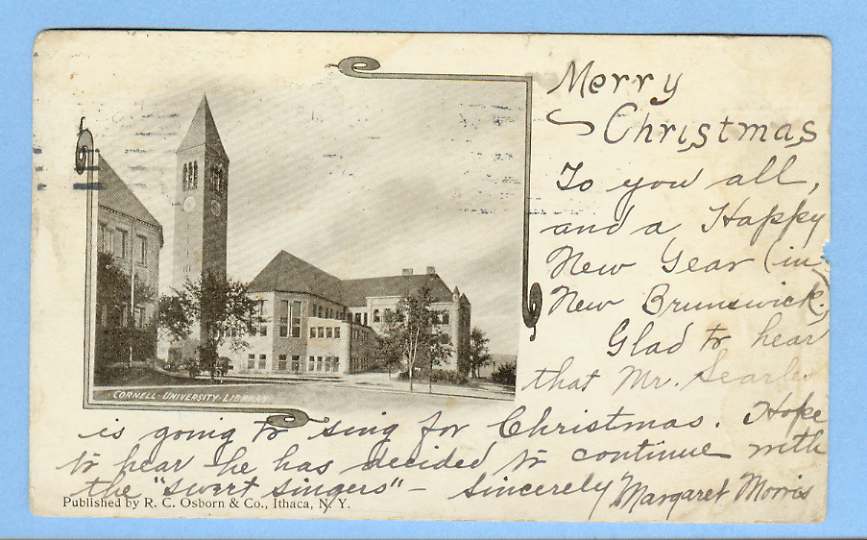 Merry
Christmas
To you all,
and a Happy
New Year (in
New Brunswick.)
Glad to hear
that Mr. Searle
CORNELL·UNIVERSITY·LIBRARY
is going to sing for Christmas. Hope
to hear he has decided to continue with
the "swert singers" – Sincerely Margaret Morris
Published by R. C. Osborn & Co., Ithaca, N. Y.